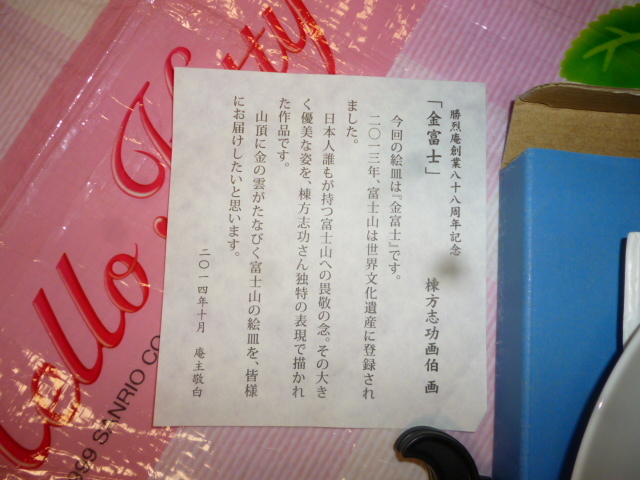 勝烈庵創業八十八周年記念
「金富士」 棟方志功画伯 画
今回の絵皿は『金富士』です。
二〇一三年、富士山は世界文化遺産に登録され
ました。
日本人誰もが持つ富士山への畏敬の念。その大き
く優美な姿を、棟方志功さん独特の表現で描かれ
た作品です。
山頂に金の雲がたなびく富士山の絵皿を、皆様
にお届けしたいと思います。
二〇一四年十月 庵主敬白
Hello Kitty
1999 SANRIO CO